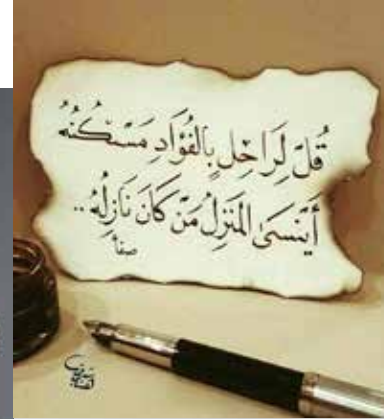 قُلْ لِرَاحِلٍ بِالفُؤَادِ مَسْكَنُهُ
أَيَنْسَىٰ المَنْزِلُ مَنْ كَانَ نَازِلُهُ..
صفا